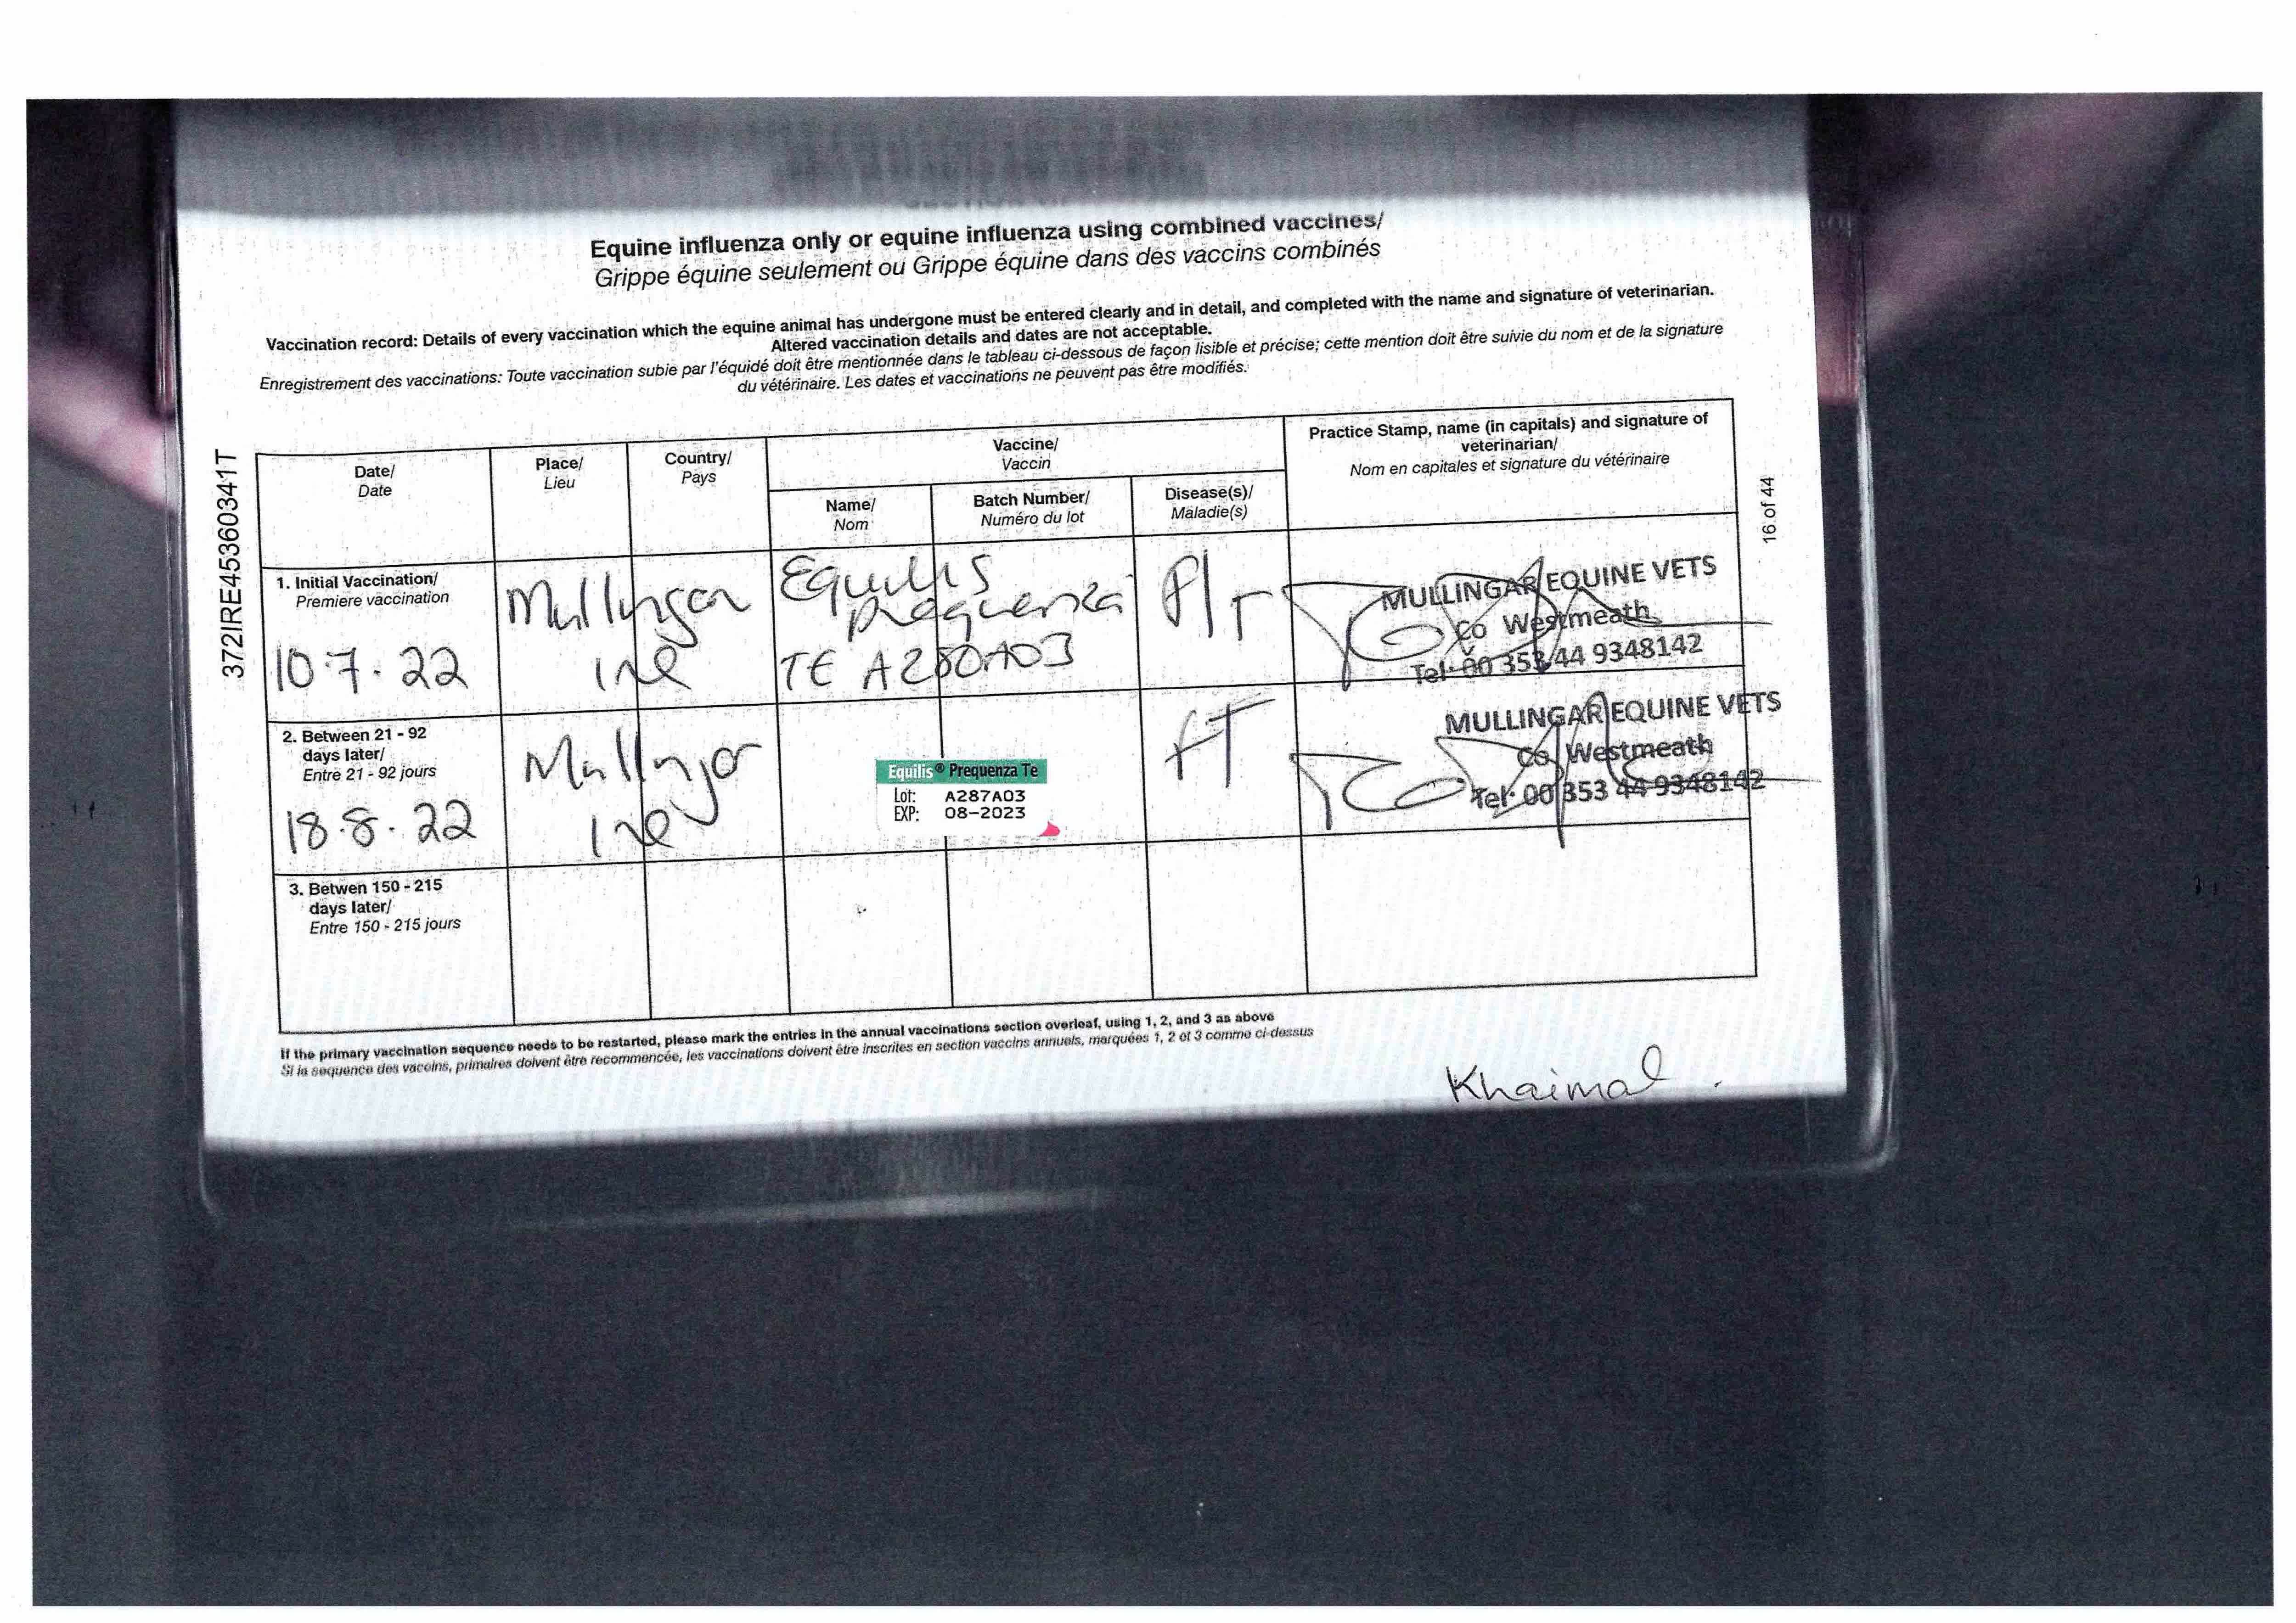 Equine influenza only or equine influenza using combined vaccines/
Grippe équine seulement ou Grippe équine dans des vaccins combinés
Vaccination record: Details of every vaccination which the equine animal has undergone must be entered clearly and in detail, and completed with the name and signature of veterinarian.
Altered vaccination details and dates are not acceptable.
Enregistrement des vaccinations: Toute vaccination subie par l'équidé doit être mentionnée dans le tableau ci-dessous de façon lisible et précise; cette mention doit être suivie du nom et de la signature
du vétérinaire. Les dates et vaccinations ne peuvent pas être modifiés.
372IRE45360341T
16 of 44
Date/
Date
Place/
Lieu
Country/
Pays
Vaccine/
Vaccin
Name/
Nom
Batch Number/
Numéro du lot
Disease(s)/
Maladie(s)
Practice Stamp, name (in capitals) and signature of
veterinarian/
Nom en capitales et signature du vétérinaire
1. Initial Vaccination/
Premiere vaccination
10.7.22
Mullingar
Ire
Equilis
Prequenza
TE A280A03
MULLINGAR EQUINE VETS
Co Westmeath
Tel: 00 353 44 9348142
2. Between 21 - 92
days later/
Entre 21 - 92 jours
18.8.22
Mullingar
Ire
Equilis® Prequenza Te
Lot: A287A03
EXP: 08-2023
FT
MULLINGAR EQUINE VETS
Co Westmeath
Tel: 00 353 44 9348142
3. Betwen 150 - 215
days later/
Entre 150 - 215 jours
If the primary vaccination sequence needs to be restarted, please mark the entries in the annual vaccinations section overleaf, using 1, 2, and 3 as above
Si la sequence des vaccins, primaires doivent être recommencée, les vaccinations doivent être inscrites en section vaccins annuels, marquées 1, 2 et 3 comme ci-dessus
Khaimal